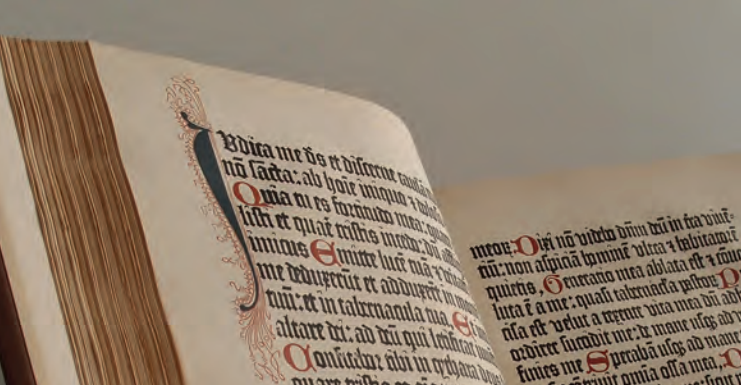 IVdica me ds et discerne causā
nō sācta: ab hoīe iniquo ⁊ dolo
Quia tu es fortitudo mea: quar
listi et quare tristis incedo: dū aff
inimicus Emitte lucē tuā ⁊
me deduxerūt et adduxerūt in m
tuū: et in tabernacula tua Et
altare dei: ad deū qui letificat iuu
Confitebor tibi in cythara deus
quare tristis es
meoꝝ: Dixi nō videbo dn̄m deū in t̄ra viuē-
tiū: non aspiciā hominē vltra ⁊ habitatorē
quietis, Generatio mea ablata est ⁊
luta ē a me: quasi tabernacl̄a pastoꝝ
cisa est velut a texente vita mea dū ad
ordirer succidit me: de mane vsqꝫ ad
finies me Sperabā vsqꝫ ad mane
contriuit omnia ossa mea,